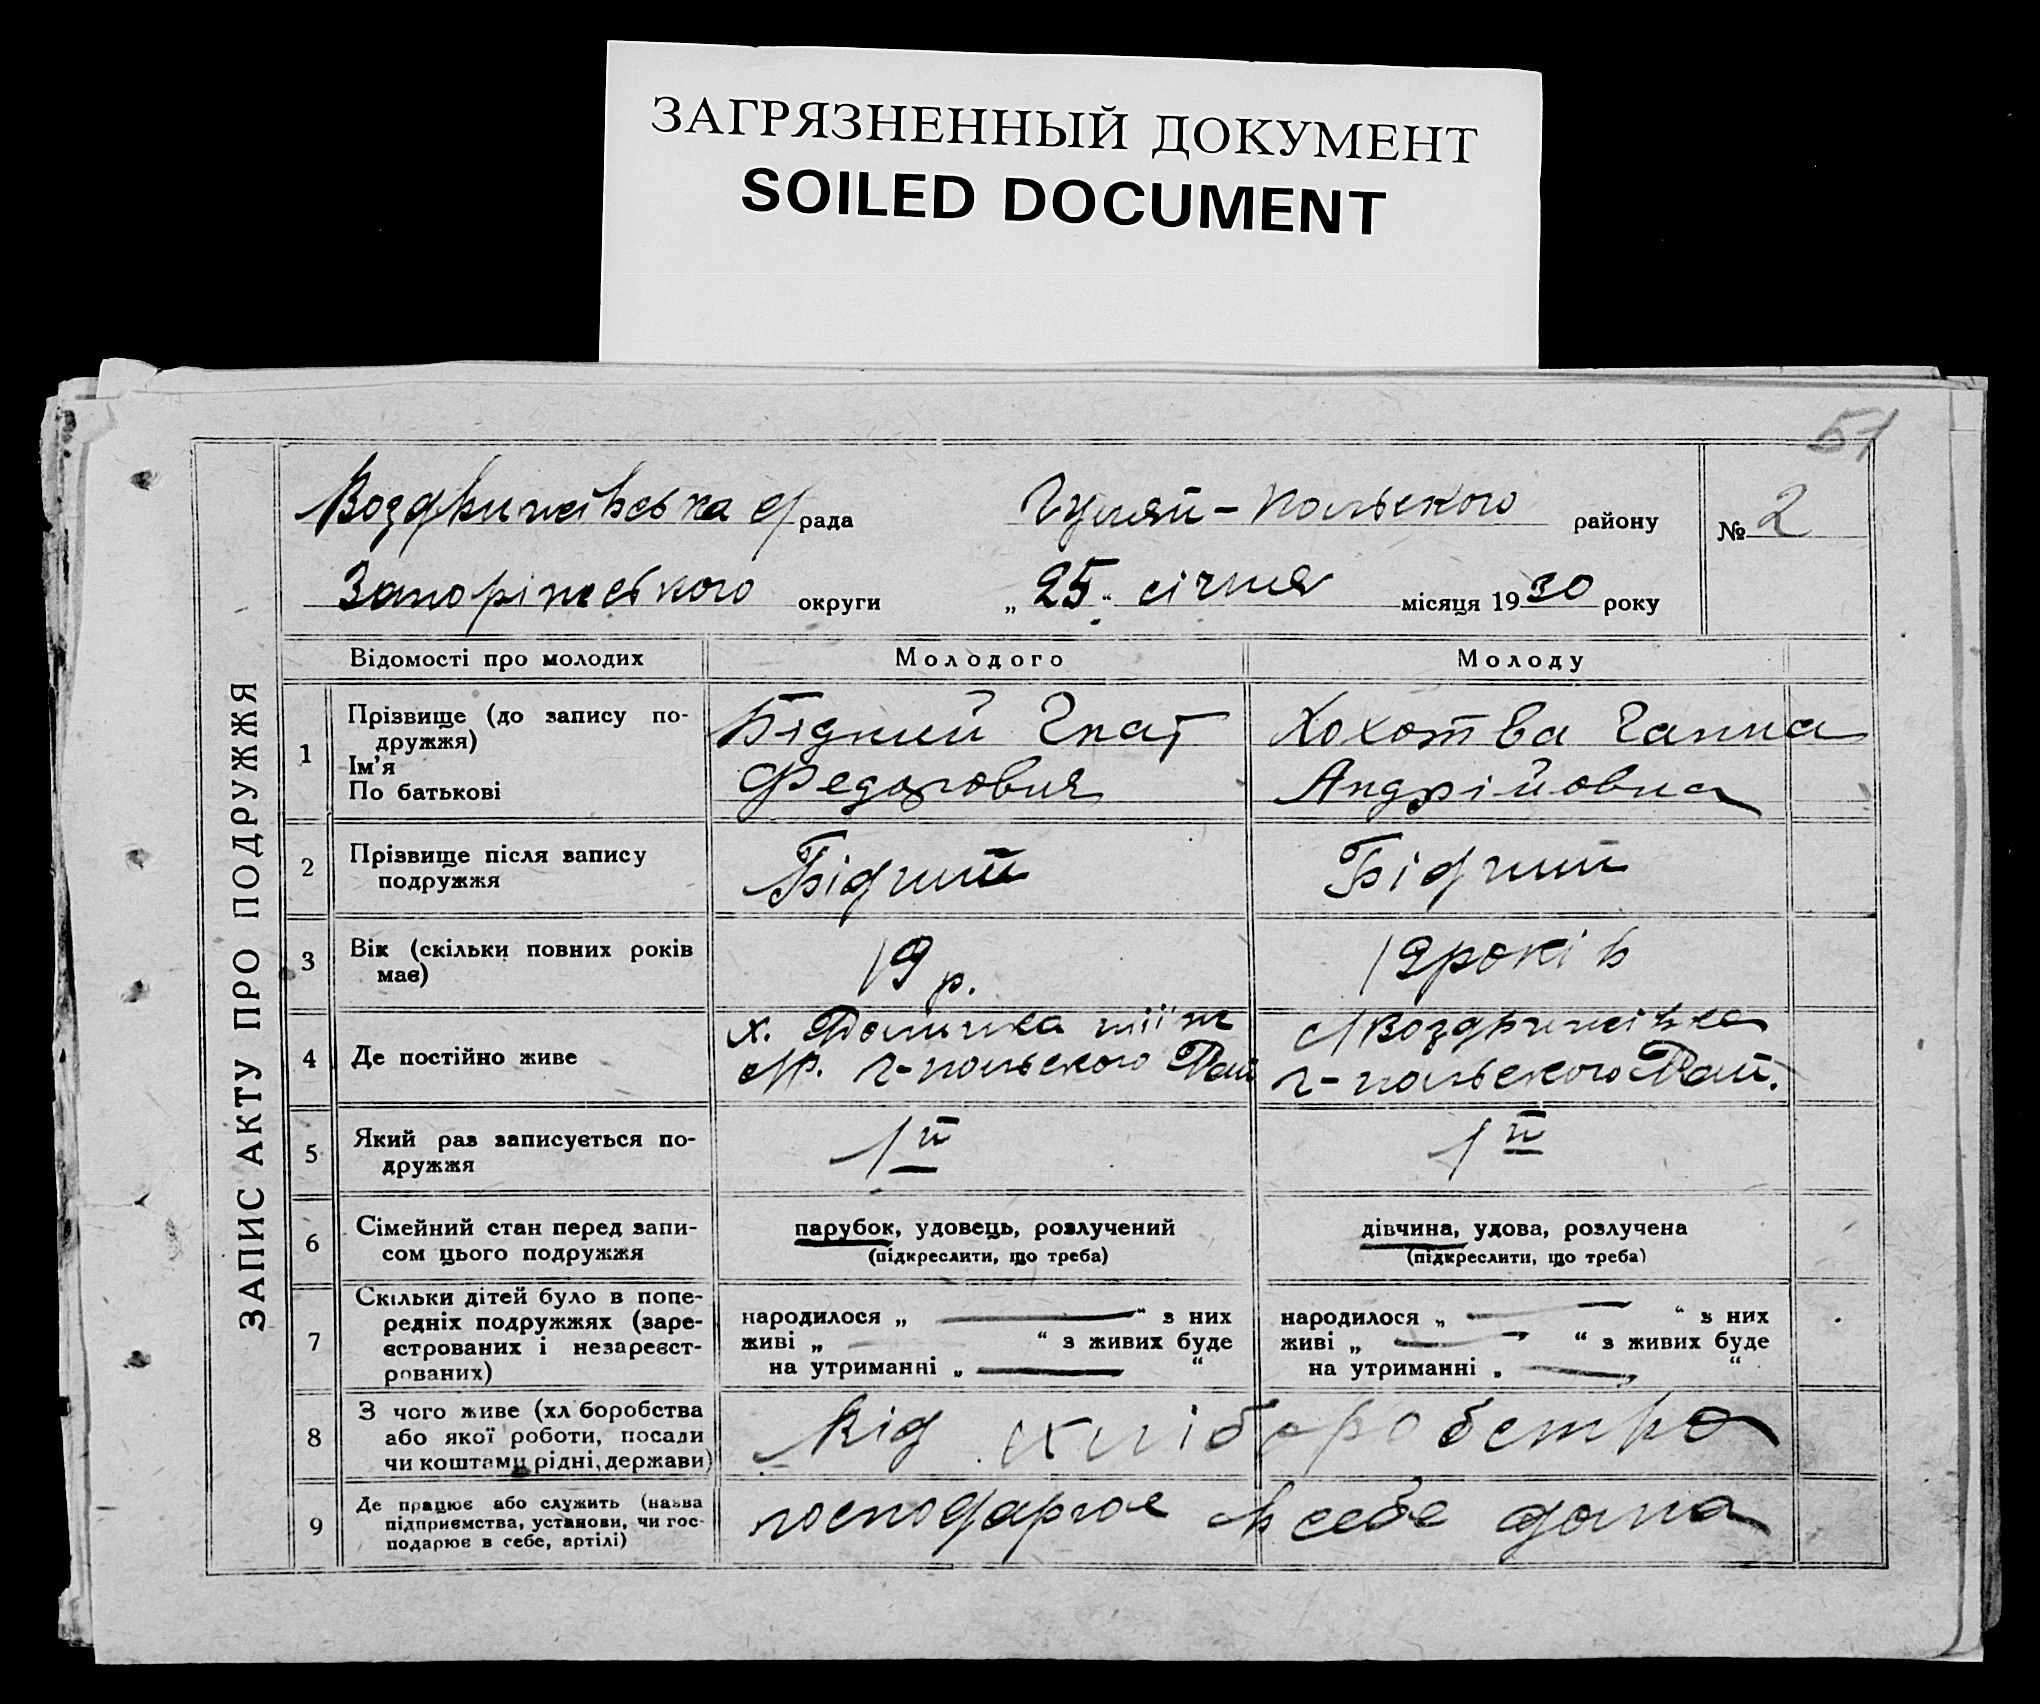 ЗАГРЯЗНЕННЫЙ ДОКУМЕНТ
SOILED DOCUMENT
51
ЗАПИС АКТУ ПРО ПОДРУЖЖЯ
Воздвижівська с/рада Гуляй-Польського району № 2
Запоріжського округи „25“ січня місяця 1930 року
Відомості про молодих Молодого Молоду
1 Прізвище (до запису по-
дружжя)
Ім'я
По батькові
Бідний Гнат
Федорович
Хохотва Ганна
Андрійовна
2 Прізвище після запису
подружжя
Бідний
Бідний
3 Вік (скільки повних років
має)
19 р.
19 років
4 Де постійно живе
х. Долинка
с/р. Г-польского Рай
с/Воздвижівка
Г-польского Рай.
5 Який раз записується по-
дружжя
1й
1й
6 Сімейний стан перед запи-
сом цього подружжя
парубок, удовець, розлучений
(підкреслити, що треба)
дівчина, удова, розлучена
(підкреслити, що треба)
7 Скільки дітей було в попе-
редніх подружжях (заре-
єстрованих і незареєст-
рованих)
народилося „ — “ з них
живі „ — “ з живих буде
на утриманні „ — “
народилося „ — “ з них
живі „ — “ з живих буде
на утриманні „ — “
8 З чого живе (хліборобства
або якої роботи, посади
чи коштами рідні, держави)
Від хліборобства
9 Де працює або служить (назва
підприємства, установи, чи гос-
подарює в себе, артілі)
господарює в себе дома